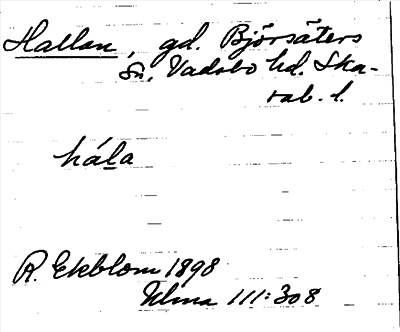 Hallan, gd. Björsäters
sn, Vadsbo hd. Ska-
rab. l.
håla
R. Ekblom 1898
Ulma 111:308